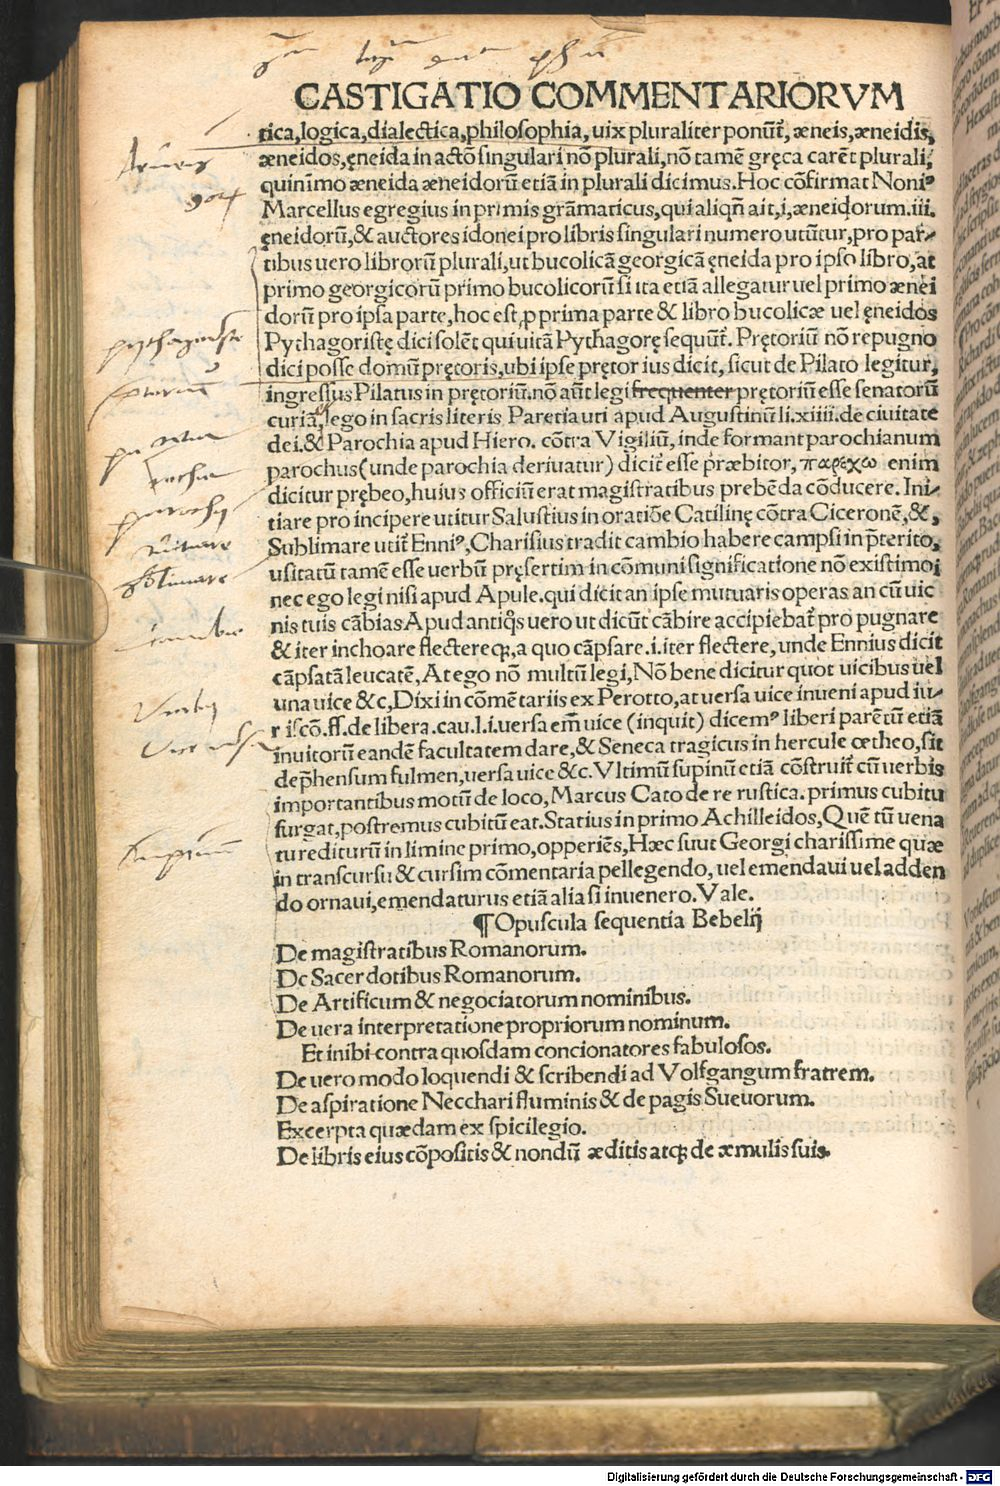 CASTIGATIO COMMENTARIORVM
rica,logica,dialectica,philosophia,uix pluraliter ponūt,æneis,æneidis,
æneidos,ęneida in actō singulari nō plurali,nō tamē gręca carēt plurali,
quinimo æneida æneidorū etiā in plurali dicimus.Hoc cōfirmat Noniꝰ
Marcellus egregius in primis grāmaticus,qui aliqñ ait,i,æneidorum.iii.
ęneidorū,& auctores idonei pro libris singulari numero utūtur,pro par-
tibus uero librorū plurali,ut bucolicā georgicā ęneida pro ipso libro,at
primo georgicorū primo bucolicorū si ita etiā allegatur uel primo ænei
dorū pro ipsa parte,hoc est,ꝓ prima parte & libro bucolicæ uel ęneidos
Pythagoristę dici solēt qui uitā Pythagorę sequūt.Prętoriū nō repugno
dici posse domū prętoris,ubi ipse prętor ius dicit,sicut de Pilato legitur,
ingressus Pilatus in prętoriū.nō aūt legi frequenter prętoriū esse senatorū
curiā,lego in sacris literis Paretia uti apud Augustinū li.xiiii.de ciuitate
dei.& Parochia apud Hiero.cōtra Vigiliū,inde formant parochianum
parochus(unde parochia deriuatur)dicit esse præbitor,παρεχω enim
dicitur prębeo,huius officiū erat magistratibus prebēda cōducere.Ini-
tiare pro incipere utitur Salustius in oratiōe Catilinę cōtra Ciceronē,&,
Sublimare utit Enniꝰ,Charisius tradit cambio habere campsi in p̄terito,
usitatū tamē esse uerbū pręsertim in cōmuni significatione nō existimo,
nec ego legi nisi apud Apule.qui dicit an ipse mutuaris operas an cū uic
nis tuis cābias Apud antiq̄s uero ut dicūt cābire accipiebat pro pugnare
& iter inchoare flectereqꝫ,a quo cāpsare.i.iter flectere,unde Ennius dicit
cāpsatā leucatē,At ego nō multū legi,Nō bene dicitur quot uicibus uel
una uice &c,Dixi in cōmētariis ex Perotto,at uersa uice inueni apud iu-
riscō.ff.de libera.cau.l.i.uersa em̄ uice (inquit) dicemꝰ liberi parētū etiā
inuitorū eandē facultatem dare,& Seneca tragicus in hercule œtheo,sit
dep̄hensum fulmen,uersa uice &c.Vltimū supinū etiā cōstruit cū uerbis
importantibus motū de loco,Marcus Cato de re rustica.primus cubitu
surgat,postremus cubitū eat.Statius in primo Achilleidos,Quē tū uena
tu rediturū in limine primo,opperiēs,Hæc suut Georgi charissime quæ
in transcursu & cursim cōmentaria pellegendo,uel emendaui uel adden
do ornaui,emendaturus etiā alia si inuenero.Vale.
¶Opuscula sequentia Bebelij
De magistratibus Romanorum.
De Sacerdotibus Romanorum.
De Artificum & negociatorum nominibus.
De uera interpretatione propriorum nominum.
Et inibi contra quosdam concionatores fabulosos.
De uero modo loquendi & scribendi ad Volfgangum fratrem.
De aspiratione Necchari fluminis & de pagis Sueuorum.
Excerpta quædam ex spicilegio.
De libris eius cōpositis & nondū æditis atqꝫ de æmulis suis.
Digitalisierung gefördert durch die Deutsche Forschungsgemeinschaft - DFG